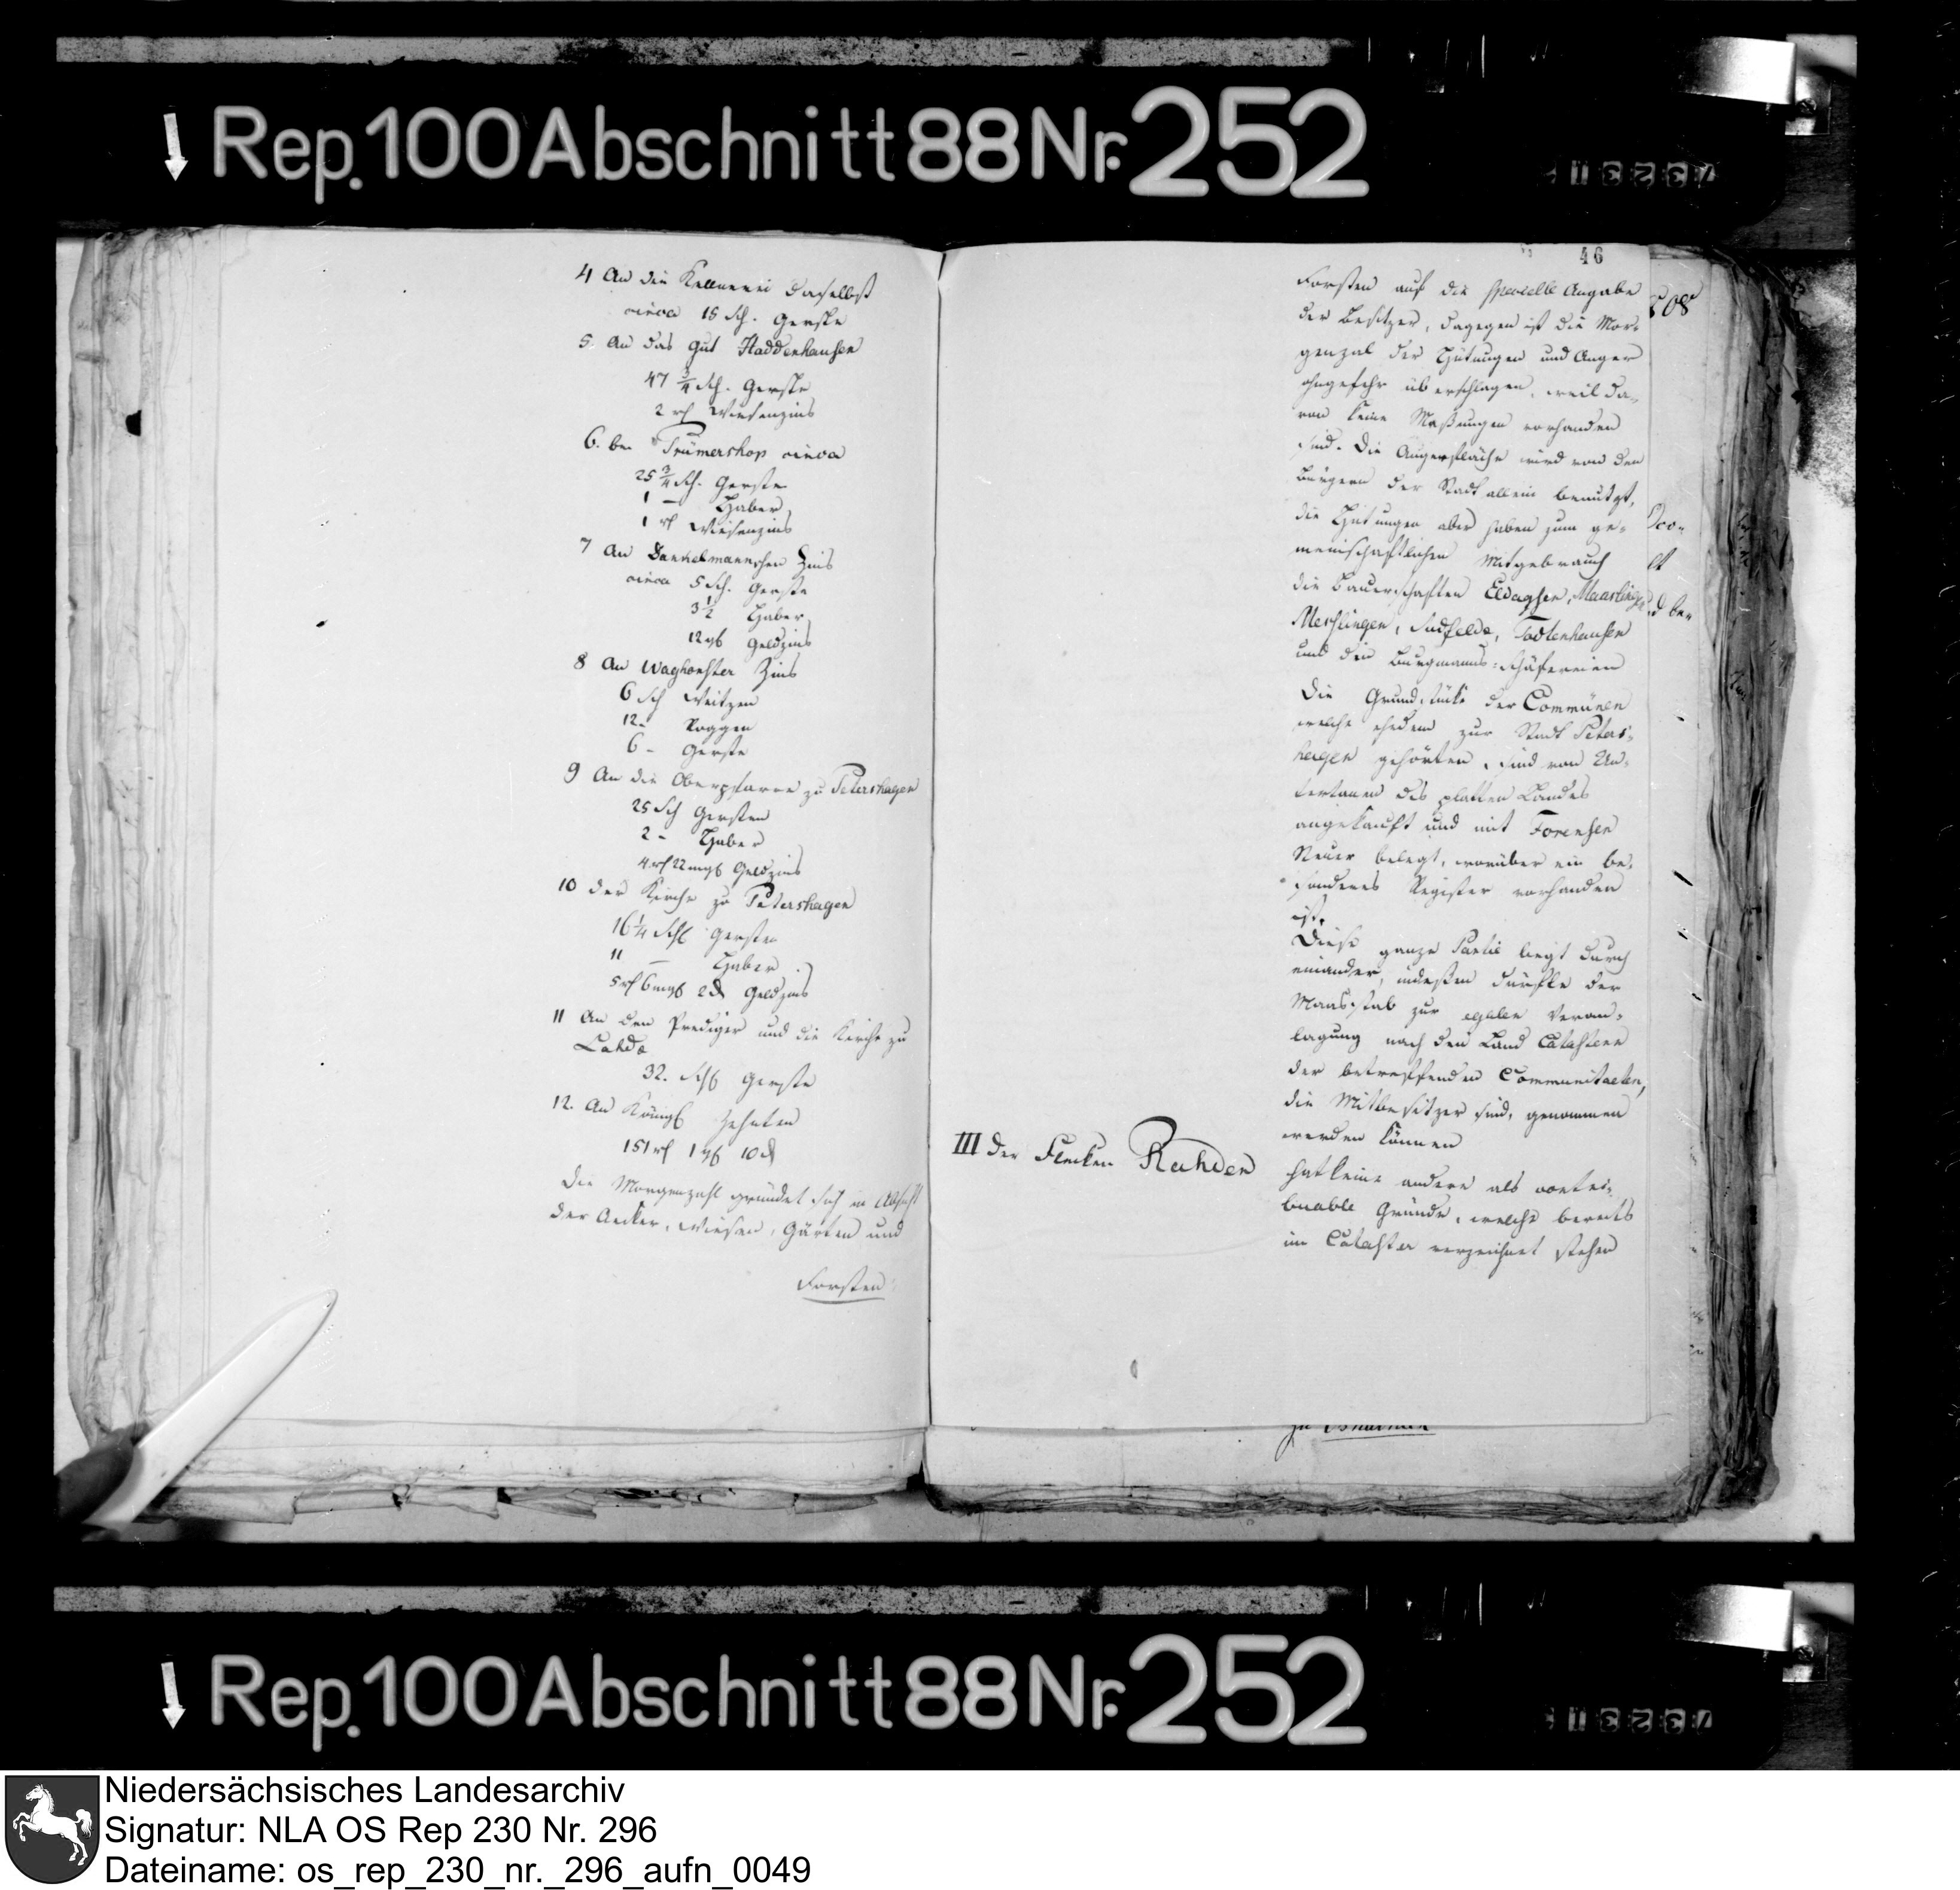 Rep. 100 Abschnitt 88 Nr. 252
4 An die Kellnerei daselbst
circa 15 Sch. Gerste
5. An das Gut Haddenhausen
47 3/4 Sch. Gerste
2 rh Wiesenzins
6. bei Trümershop circa
25 3/4 Sch. Gerste
1 — Haber
1 rh Wiesenzins
7 An Dankelmannschen Zins
circa 5 Sch. Gerste
3 1/2 Haber
12 gs Geldzins
8 An Waghorster Zins
6 Sch Weitzen
12 - Roggen
6 - Gerste
9 An die Oberpfarre zu Petershagen
25 Sch Gersten
2 - Haber
4 rh 22 mgs Geldzins
10 der Kirche zu Petershagen
16 1/4 Schl Gersten
11 — Haber
5 rh 6 mgs 2 d Geldzins
11 An den Prediger und die Kirche zu
Lahde
32. Schl Gerste
12. An Königl Zehnten
151 rh 1 gs 10 d
Die Morgenzahl gründet sich in Absicht
der Aecker, Wiesen, Gärten und
Forsten
46
Forsten auf die specielle Angabe
der Besitzer, dagegen ist die Mor-
genzal der Hütungen und Anger
ohngefehr überschlagen, weil da-
von keine Meßungen vorhanden
sind. Die Angerfläche wird von den
Bürgern der Stadt allein benutzt,
die Hütungen aber haben zum ge-
meinschaftlichen Mitgebrauch
die Bauerschaften Eldagsen, Maaslingen
Messlingen, Südfelde, Todtenhausen
und die Burgmanns-Schäfereien
Die Grundstücke der Communen
welche ehedem zur Stadt Peters-
hagen gehörten, sind von Un-
tertanen des platten Landes
angekauft und mit Forensen
Steuer belegt, worüber ein be-
sonderes Register vorhanden
ist.
Diese ganze Partie liegt durch
einander, indeßen dürfte der
Maasstab zur egalen Veran-
lagung nach den Land Catastern
der betreffenden Communitaeten,
die Mitbesitzer sind, genommen
werden können
III Der Flecken Rahden
hat keine andere als contri-
buable Gründe, welche bereits
im Cataster verzeichnet stehen
Rep. 100 Abschnitt 88 Nr. 252
Niedersächsisches Landesarchiv
Signatur: NLA OS Rep 230 Nr. 296
Dateiname: os_rep_230_nr._296_aufn_0049